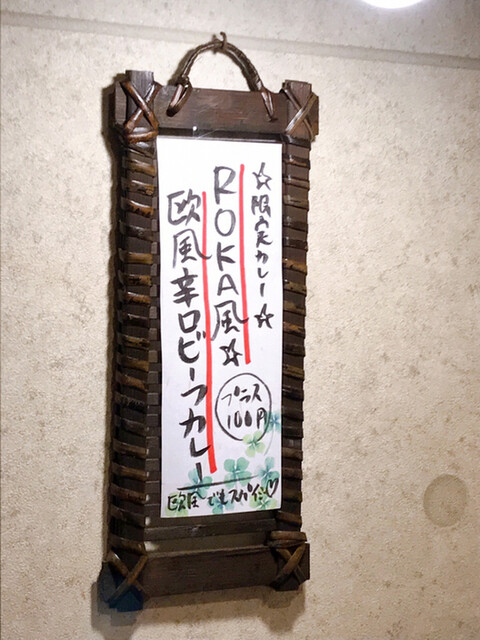 ☆限定カレー☆
ROKA風☆
欧風辛口ビーフカレー
プラス
100円
欧風でもスパイシー♡